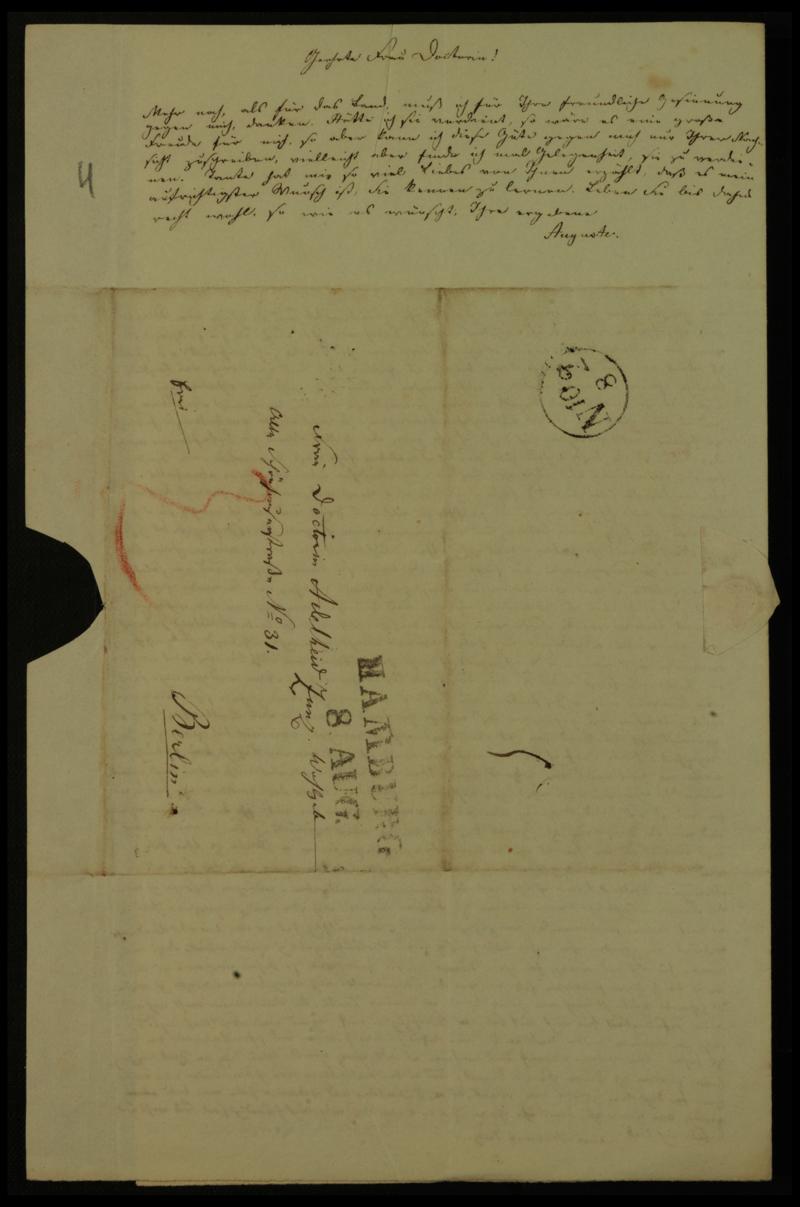 Geehrte Frau Doctorin!
Mehr noch, als für das Band, muß ich für Ihre freundliche Gesinnung
gegen mich, danken. Hätte ich sie verdient, so wäre es eine große
Freude für mich, so aber kann ich diese Güte gegen mich nur Ihrer Nach-
sicht zuschreiben, vielleicht aber finde ich mal Gelegenheit, sie zu verdie-
nen. Tante hat mir so viel Liebes von Ihnen erzählt, daß es mein
aufrichtigster Wunsch ist, Sie kennen zu lernen. Leben Sie bis dahin
recht wohl, so wie es wünscht, Ihre ergebene
Auguste.
4
N 8
HAMBURG
8. AUG.
Frau Doctorin Adelheid Zunz. Wohlgeb
Alte Schönhauserstraße No 31.
Berlin
frei